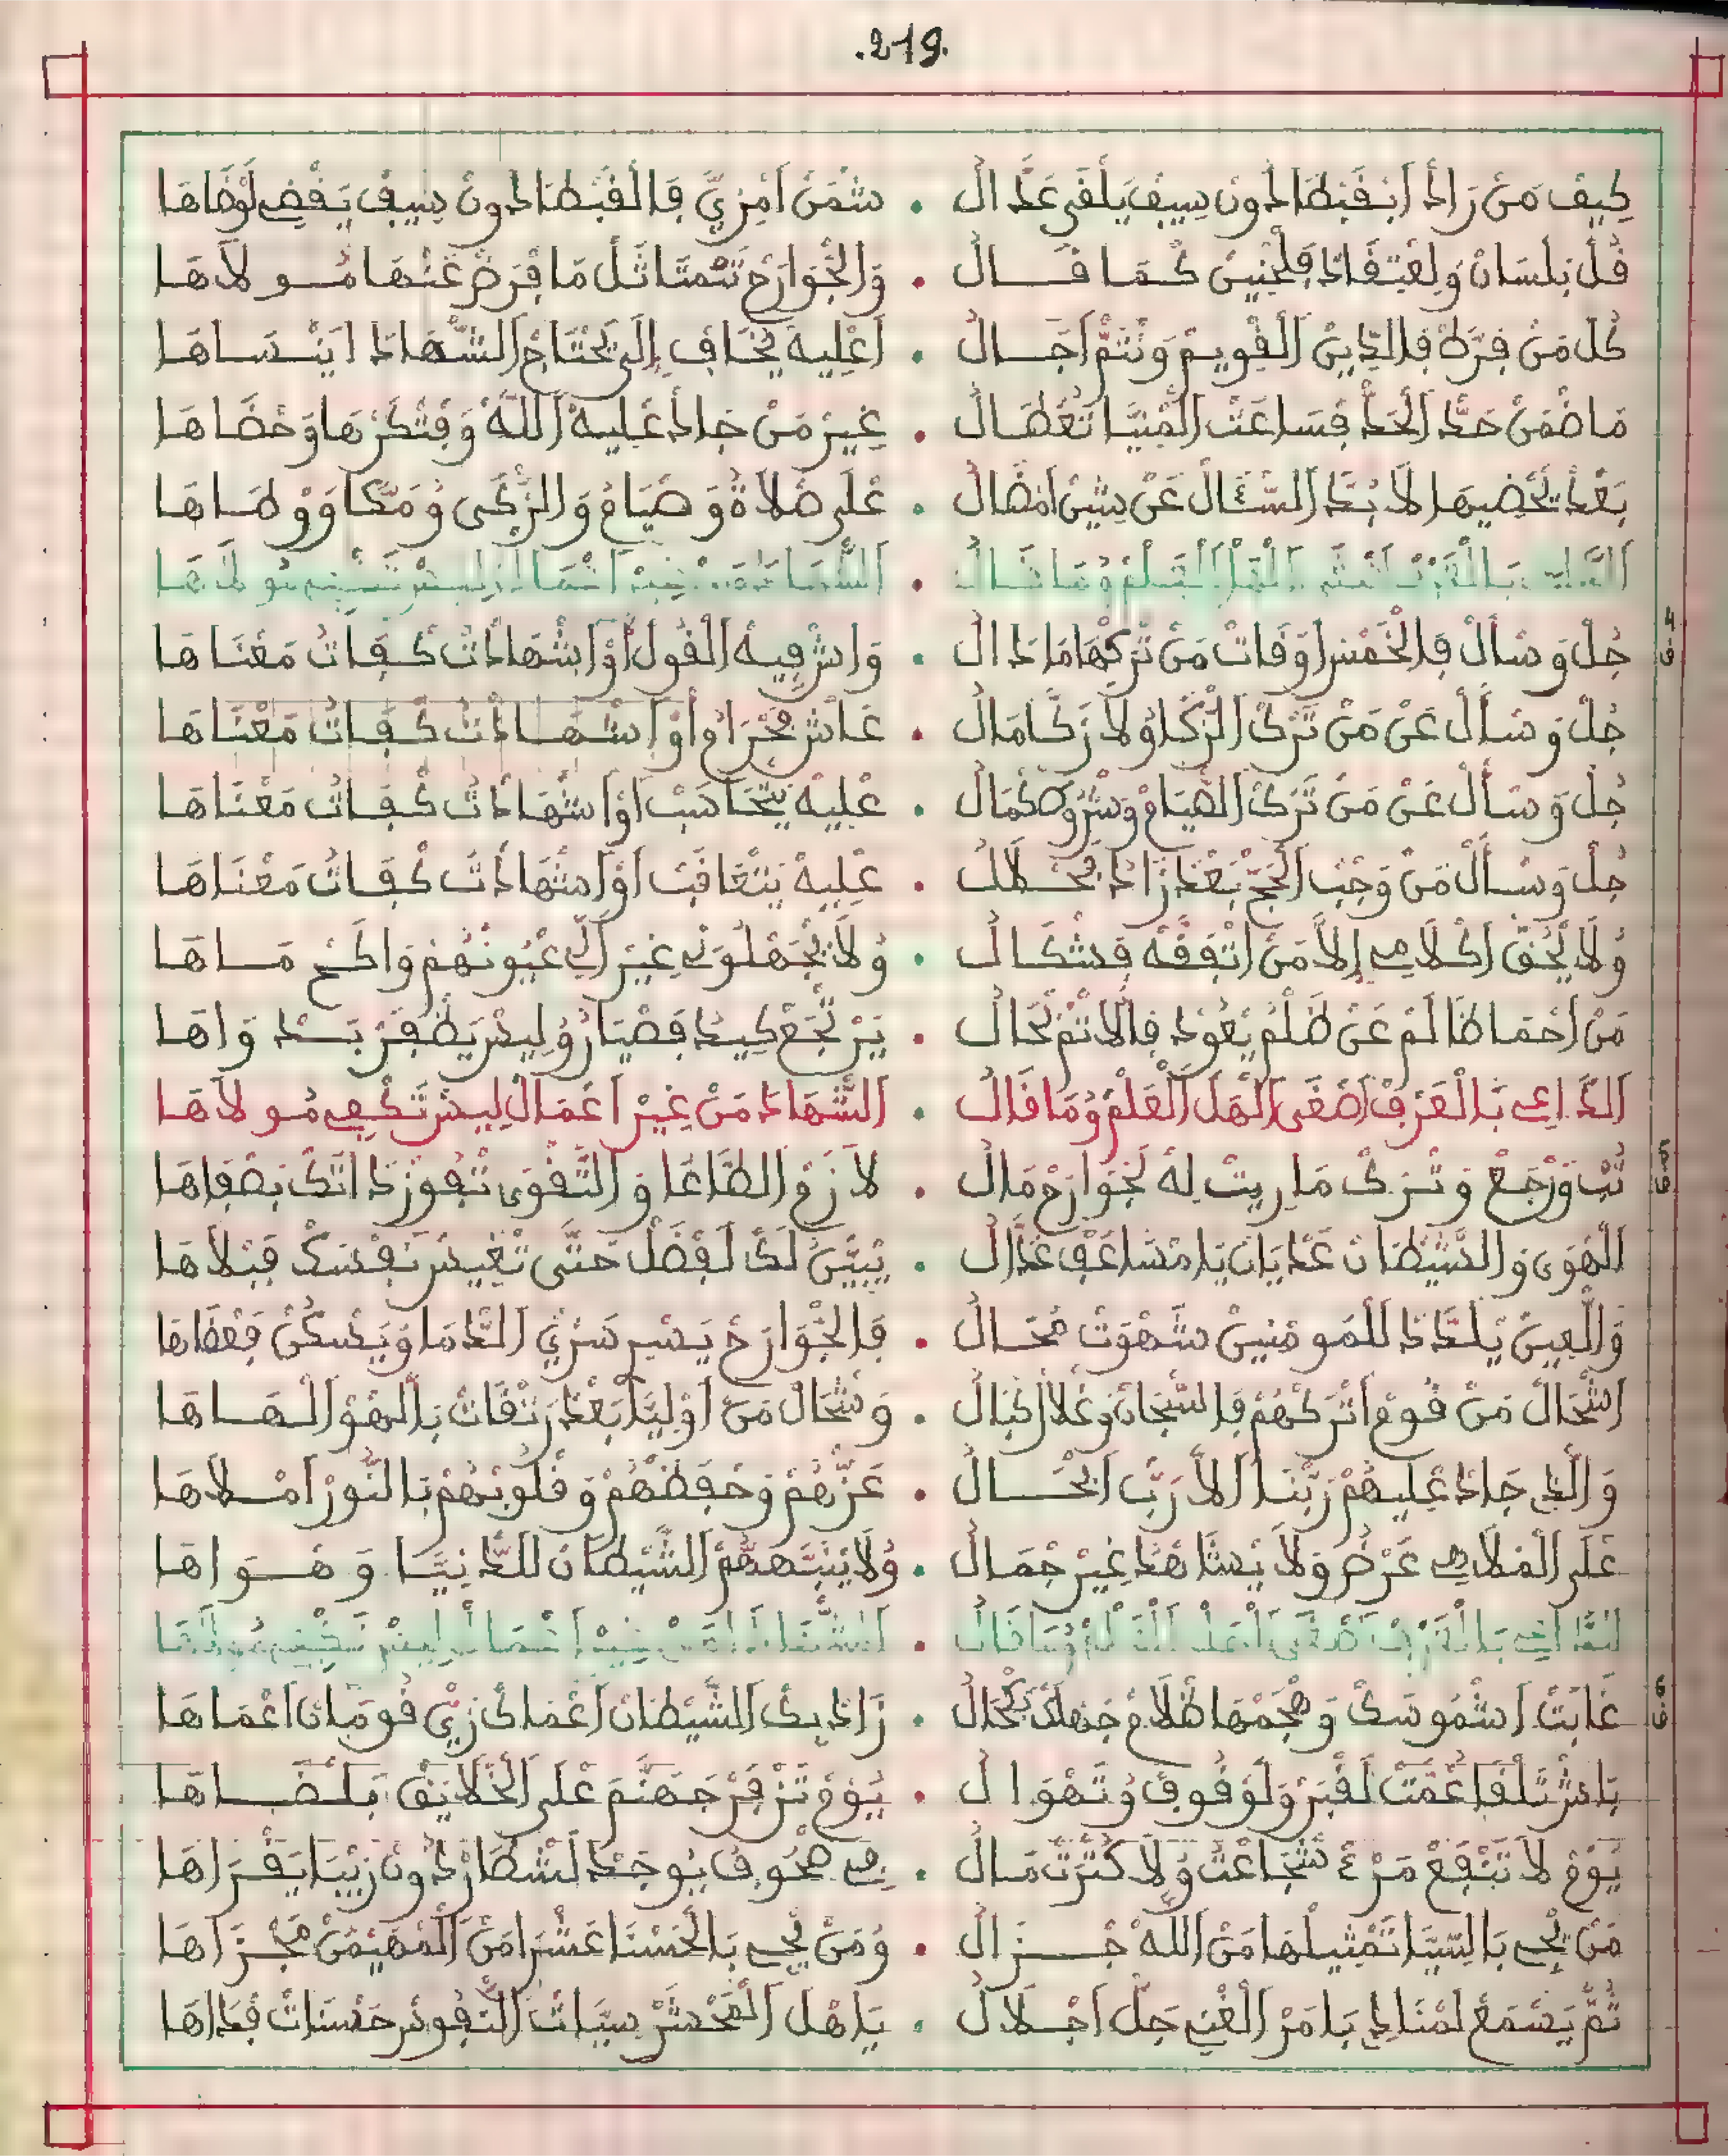 .219.
كِيفْ مَنْ رَادْ اَبْفَبْطَا دُونْ سِيفْ يَلْقَى عَدَّالْ . شْمَنْ اَمْزِيَّ فَالْفَبْطَا دُونْ سِيفْ يَفْضِي لَوْفَاهَا
فُلْ بَلْسَانْ وَلِعْتِقَادْ فَلْجْنِينْ كْمَا قَالْ . وَالْجْوَارَحْ تَتْمْتَاثَلْ مَا فْرَضْ عَنْهَا مُولَاهَا
كُلْ مَنْ فِرَّطْ فَالدِّينْ الْقْوِيمْ وَنْتَمْ اَجَالْ . اَعْلِيهْ يْخَافْ إِلَى يَحْتَاجْ الشّْهَادَ ايَنْسَاهَا
مَا ضْمَنْ حَدْ الْحَدْ فْسَاعَتْ الْمْنِيَّا تَعْطَالْ . غِيرْ مَنْ جَادْ عَلِيهْ اللَّهْ وَفْتَكَرْهَا وَحْضَاهَا
بَعْدْ تَحْضِيهَا لَا بُدَّ السُّئَالْ عَنْ سِتِّينْ اَمْضَالْ . عْلَى صْلَاةْ وَصْيَامْ وَالزّْكَى وْمَكَّا وَوْطَاهَا
جُلْ وَسْأَلْ فَالْخَمْسْ اَوْقَاتْ مَنْ تَرْكْهَا مَادَالْ . وَاشْ فِيهْ الْقُولْ أَوْ اشْهَادْتْ كْفَاتْ مَعْنَاهَا
جُلْ وَسْأَلْ عَنْ مَنْ تَرْكْ الزّْكَا وْلَا زَكَّا مَالْ . عَاشْ مُجْرَامْ أَوْ اشْهَادْتْ كْفَاتْ مَعْنَاهَا
جُلْ وَسْأَلْ عَنْ مَنْ تَرْكْ الصّْيَامْ وَشْرُوطْ كْمَالْ . عْلِيهْ يَتْحَاسَبْ اَوْ اشْهَادْتْ كْفَاتْ مَعْنَاهَا
جُلْ وَسْأَلْ مَنْ وَجْبْ الْحَجّْ بَعْدْ زَادْ مْحَلَّلْ . عْلِيهْ يَتْعَاقَبْ اَوْ اشْهَادْتْ كْفَاتْ مَعْنَاهَا
وْلَا يْحَقّْ اكْلَامِي إِلَّا مَنْ اتْفَقَّهْ فَشْكَالْ . وْلَا يْجَهْلُونِي غِيرْ الِّي عْيُونْهُمْ وَاكَحْ مَاهَا
مَنْ احْمَا ظَالَمْ عَنْ ظُلْمْ يْعُودْ فَالَاتَمْ نْحَالْ . يَرْتْجَعْ كِيدْ فَصْيَارُ وْلِيسْ يَظْفَرْ بَدْوَاهَا
الدَّاعِي بَالْعَرْفْ اصْغَى الْهْلْ الْعْلَمْ وْمَا قَالْ . الشّْهَادَ مَنْ غِيرْ اعْمَالْ لِيسْ تَكْفِي مُولَاهَا
تُبْ وَرْجَعْ وَتْرَكْ مَا رِيتْ لِهْ لَجْوَارَحْ مَالْ . لَازَمْ الطَّاعَا وَالتَّقْوَى تْفُوزْ ذَاتَكْ بَصْفَاهَا
الْهْوَى وَالشَّيْطَانْ عَدْيَانْ يَا مْشَاعَفْ عَدَّالْ . يْبَيَّنْ لَكْ لَفْضَلْ حَتَّى تْغِيسْ نَفْسَكْ فَبْلَاهَا
وَالْعِينْ يْلَدَّدْ لَلْمُومْنِينْ شَهْوَتْ مْحَالْ . فَالْجْوَارَحْ يَسْرِ سَرْيْ الدّْمَا وَيَسْكُنْ فَعْضَاهَا
اشْحَالْ مَنْ قُومْ اَتْرَكْهُمْ فَالسّْجَانْ وَغْلَالْ كْبَالْ . وَشْحَالْ مَنْ اَوْلِيَّا بَعْدْ رَتْقَاتْ بَالْهْوْ الْهَاهَا
وَالَّذِي جَادْ عْلِيهُمْ رَبّْنَا اَلَا رَبّْ الْحَالْ . عَزّْهُمْ وَحْفَظْهُمْ وَقْلُوبْهُمْ بَالنُّورْ اَمْلَاهَا
عْلَى الْمْلَاهِي عَرْضُ وَلَا يْشَاهْدُ غِيرْ جْمَالْ . وْلَا يْنَبَّهْهُمْ الشَّيْطَانْ لَلدَّنْيَا وَهْوَاهَا
غَابَتْ اشْمُوسَكْ وَهْجَمْهَا ظْلَامْ جَهْلَكْ بَكْحَالْ . زَادْ بِكْ الشَّيْطَانْ اعْمَاكْ زِيّْ قُومَانْ اعْمَاهَا
بَاشْ تَلْقَا غُمَّتْ لَقْبَرْ وَلَوْقُوفْ وْتَهْوَالْ . يُومْ تَزْفَرْ جَهَنَّمَ عْلَى الْخْلَايَقْ بَلْضَاهَا
يُومْ لَا تَنْفَعْ مَرْءْ شْجَاعْتُ وْلَا كَثْرَتْ مَالْ . فِي صْحُوفُ يُوجَدْ لَشْطَارْ دُونْ رِيبَا يَقْرَاهَا
مَنْ يْجِي بَالسِّيَّا تَمْثِيلْهَا مَنْ اللهْ جْزَالْ . وْمَنْ يْجِي بَالْحَسْنَا عَشْرَا مَنْ الْمْهَيْمَنْ مَجْزَاهَا
تُمّْ يَسْمَعْ لَمْنَادِي بَامَرْ الْغْنِي جَلّْ اَجْلَالْ . يَاهْلْ الْمَحْشَرْ سِيَّاتْ النّْفُوسْ حَسْنَاتْ فْدَاهَا